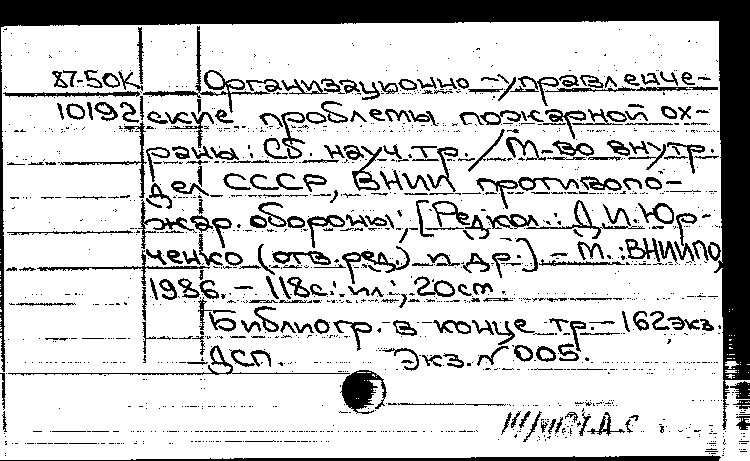 87-50К Организационно-управленче-
10192 ские проблемы пожарной ох-
раны: Сб. науч. тр. / М-во внутр.
дел СССР, ВНИИ противопо-
жар. обороны; [Редкол.: Д.И. Юр-
ченко (отв. ред.) и др.]. - М.: ВНИИПО,
1986. - 118с.: ил.; 20см.
Библиогр. в конце тр. - 162экз.
ДСП. Экз. № 005.